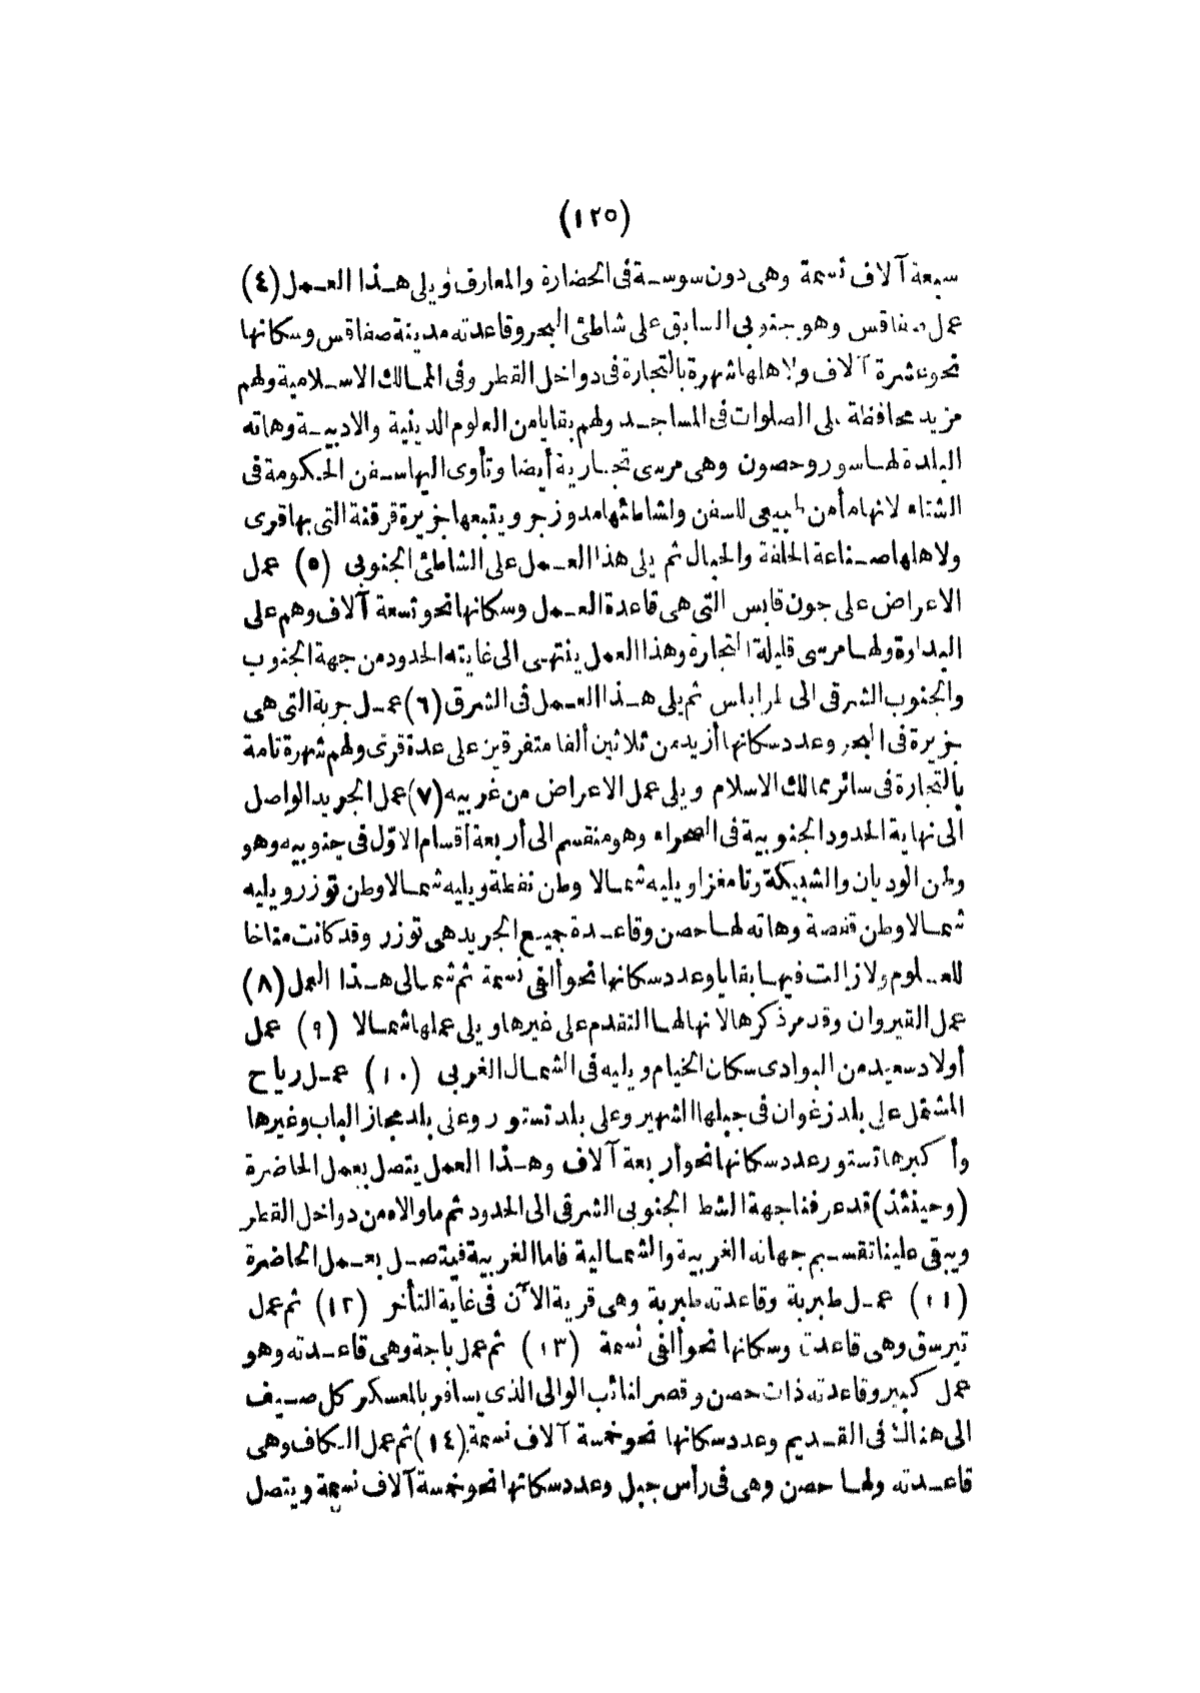 (١٢٥)
سبعة آلاف نسمة وهى دون سوسة فى الحضارة والمعارف ويلى هذا العمل (٤)
عمل صفاقس وهو جنوبى السابق على شاطئ البحر وقاعدته مدينة صفاقس وسكانها
نحو عشرة آلاف ولاهلها شهرة بالتجارة فى دواخل القطر وفى الممالك الاسلامية ولهم
مزيد محافظة على الصلوات فى المساجد ولهم بقايا من العلوم الدينية والادبية وهاته
البلدة لها سور وحصون وهى مرسى تجارية أيضا وتأوى اليها سفن الحكومة فى
الشتاء لانها مأمن طبيعى للسفن ولشاطئها مد وزجر ويتبعها جزيرة قرقنة التى بها قرى
ولاهلها صناعة الحلفة والحبال ثم يلى هذا العمل على الشاطئ الجنوبى (٥) عمل
الاعراض على جون قابس التى هى قاعدة العمل وسكانها نحو تسعة آلاف وهم على
البداوة ولها مرسى قليلة التجارة وهذا العمل ينتهى الى غاية الحدود من جهة الجنوب
والجنوب الشرقى الى طرابلس ثم يلى هذا العمل فى الشرق (٦) عمل جربة التى هى
جزيرة فى البحر وعدد سكانها أزيد من ثلاثين ألفا متفرقين على عدة قرى ولهم شهرة تامة
بالتجارة فى سائر ممالك الاسلام ويلى عمل الاعراض من غربيه (٧) عمل الجريد الواصل
الى نهاية الحدود الجنوبية فى الصحراء وهو منقسم الى أربعة أقسام الاوّل فى جنوبيه وهو
وطن الوديان والشبيكة وتامغزا ويليه شمالا وطن نفطة ويليه شمالا وطن توزر ويليه
شمالا وطن قفصة وهاته لها حصن وقاعدة جميع الجريد هى توزر وقد كانت مناخا
للعلوم ولا زالت فيها بقايا وعدد سكانها نحو ألفى نسمة ثم شمالى هذا العمل (٨)
عمل القيروان وقد مر ذكرها لانها لها التقدم على غيرها ويلى عملها شمالا (٩) عمل
أولاد سعيد من البوادى سكان الخيام ويليه فى الشمال الغربى (١٠) عمل رياح
المشتمل على بلد زغوان فى جبلها الشهير وعلى بلد تستور وعلى بلد مجاز الباب وغيرها
وأكبرها تستور عدد سكانها نحو أربعة آلاف وهذا العمل يتصل بعمل الحاضرة
(وحينئذ) قد عرفنا جهة الشط الجنوبى الشرقى الى الحدود ثم ما والاه من دواخل القطر
ويبقى علينا تقسيم جهاته الغربية والشمالية فاما الغربية فيتصل بعمل الحاضرة
(١١) عمل طبربة وقاعدته طبربة وهى قرية الآن فى غاية التأخر (١٢) ثم عمل
تبرسق وهى قاعدته وسكانها نحو ألفى نسمة (١٣) ثم عمل باجة وهى قاعدته وهو
عمل كبير وقاعدته ذات حصن وقصر لنائب الوالى الذى يسافر بالمعسكر كل صيف
الى هنالك فى القديم وعدد سكانها نحو خمسة آلاف نسمة (١٤) ثم عمل الكاف وهى
قاعدته ولها حصن وهى فى رأس جبل وعدد سكانها نحو خمسة آلاف نسمة ويتصل